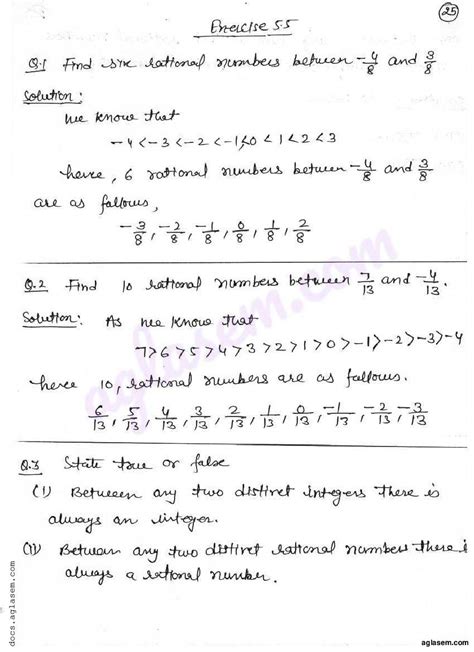 25
Exercise 5.5
Q.1 Find six rational numbers between -4/8 and 3/8
Solution:
We know that
-4 < -3 < -2 < -1 < 0 < 1 < 2 < 3
hence, 6 rational numbers between -4/8 and 3/8
are as follows,
-3/8, -2/8, -1/8, 0/8, 1/8, 2/8
Q.2 Find 10 rational numbers between 7/13 and -4/13.
Solution: As we know that
7 > 6 > 5 > 4 > 3 > 2 > 1 > 0 > -1 > -2 > -3 > -4
hence 10, rational numbers are as follows.
6/13, 5/13, 4/13, 3/13, 2/13, 1/13, 0/13, -1/13, -2/13, -3/13
Q.3 State true or false
(i) Between any two distinct integers there is
always an integer.
(ii) Between any two distinct rational numbers there is
always a rational number.
aglasem.com
docs.aglasem.com
aglasem.com